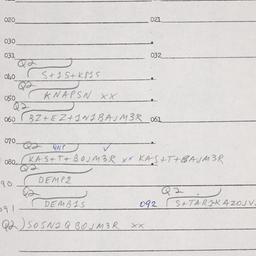 020 021
030
031 032
Q2
040 S+1S+KP1S
Q2
050 KNAPSN xx
Q2
060 BZ+EZ+1N1BAJM3R 061
070
Q2 ✓
080 KAS+T+BOJM3R xx KAS+T+BAJM3R
Q2
90 DEMP2
Q2 Q2
091 DEMB1S 092 S+TAR2KAZOJV
Q2) SOSN2QBOJM3R xx